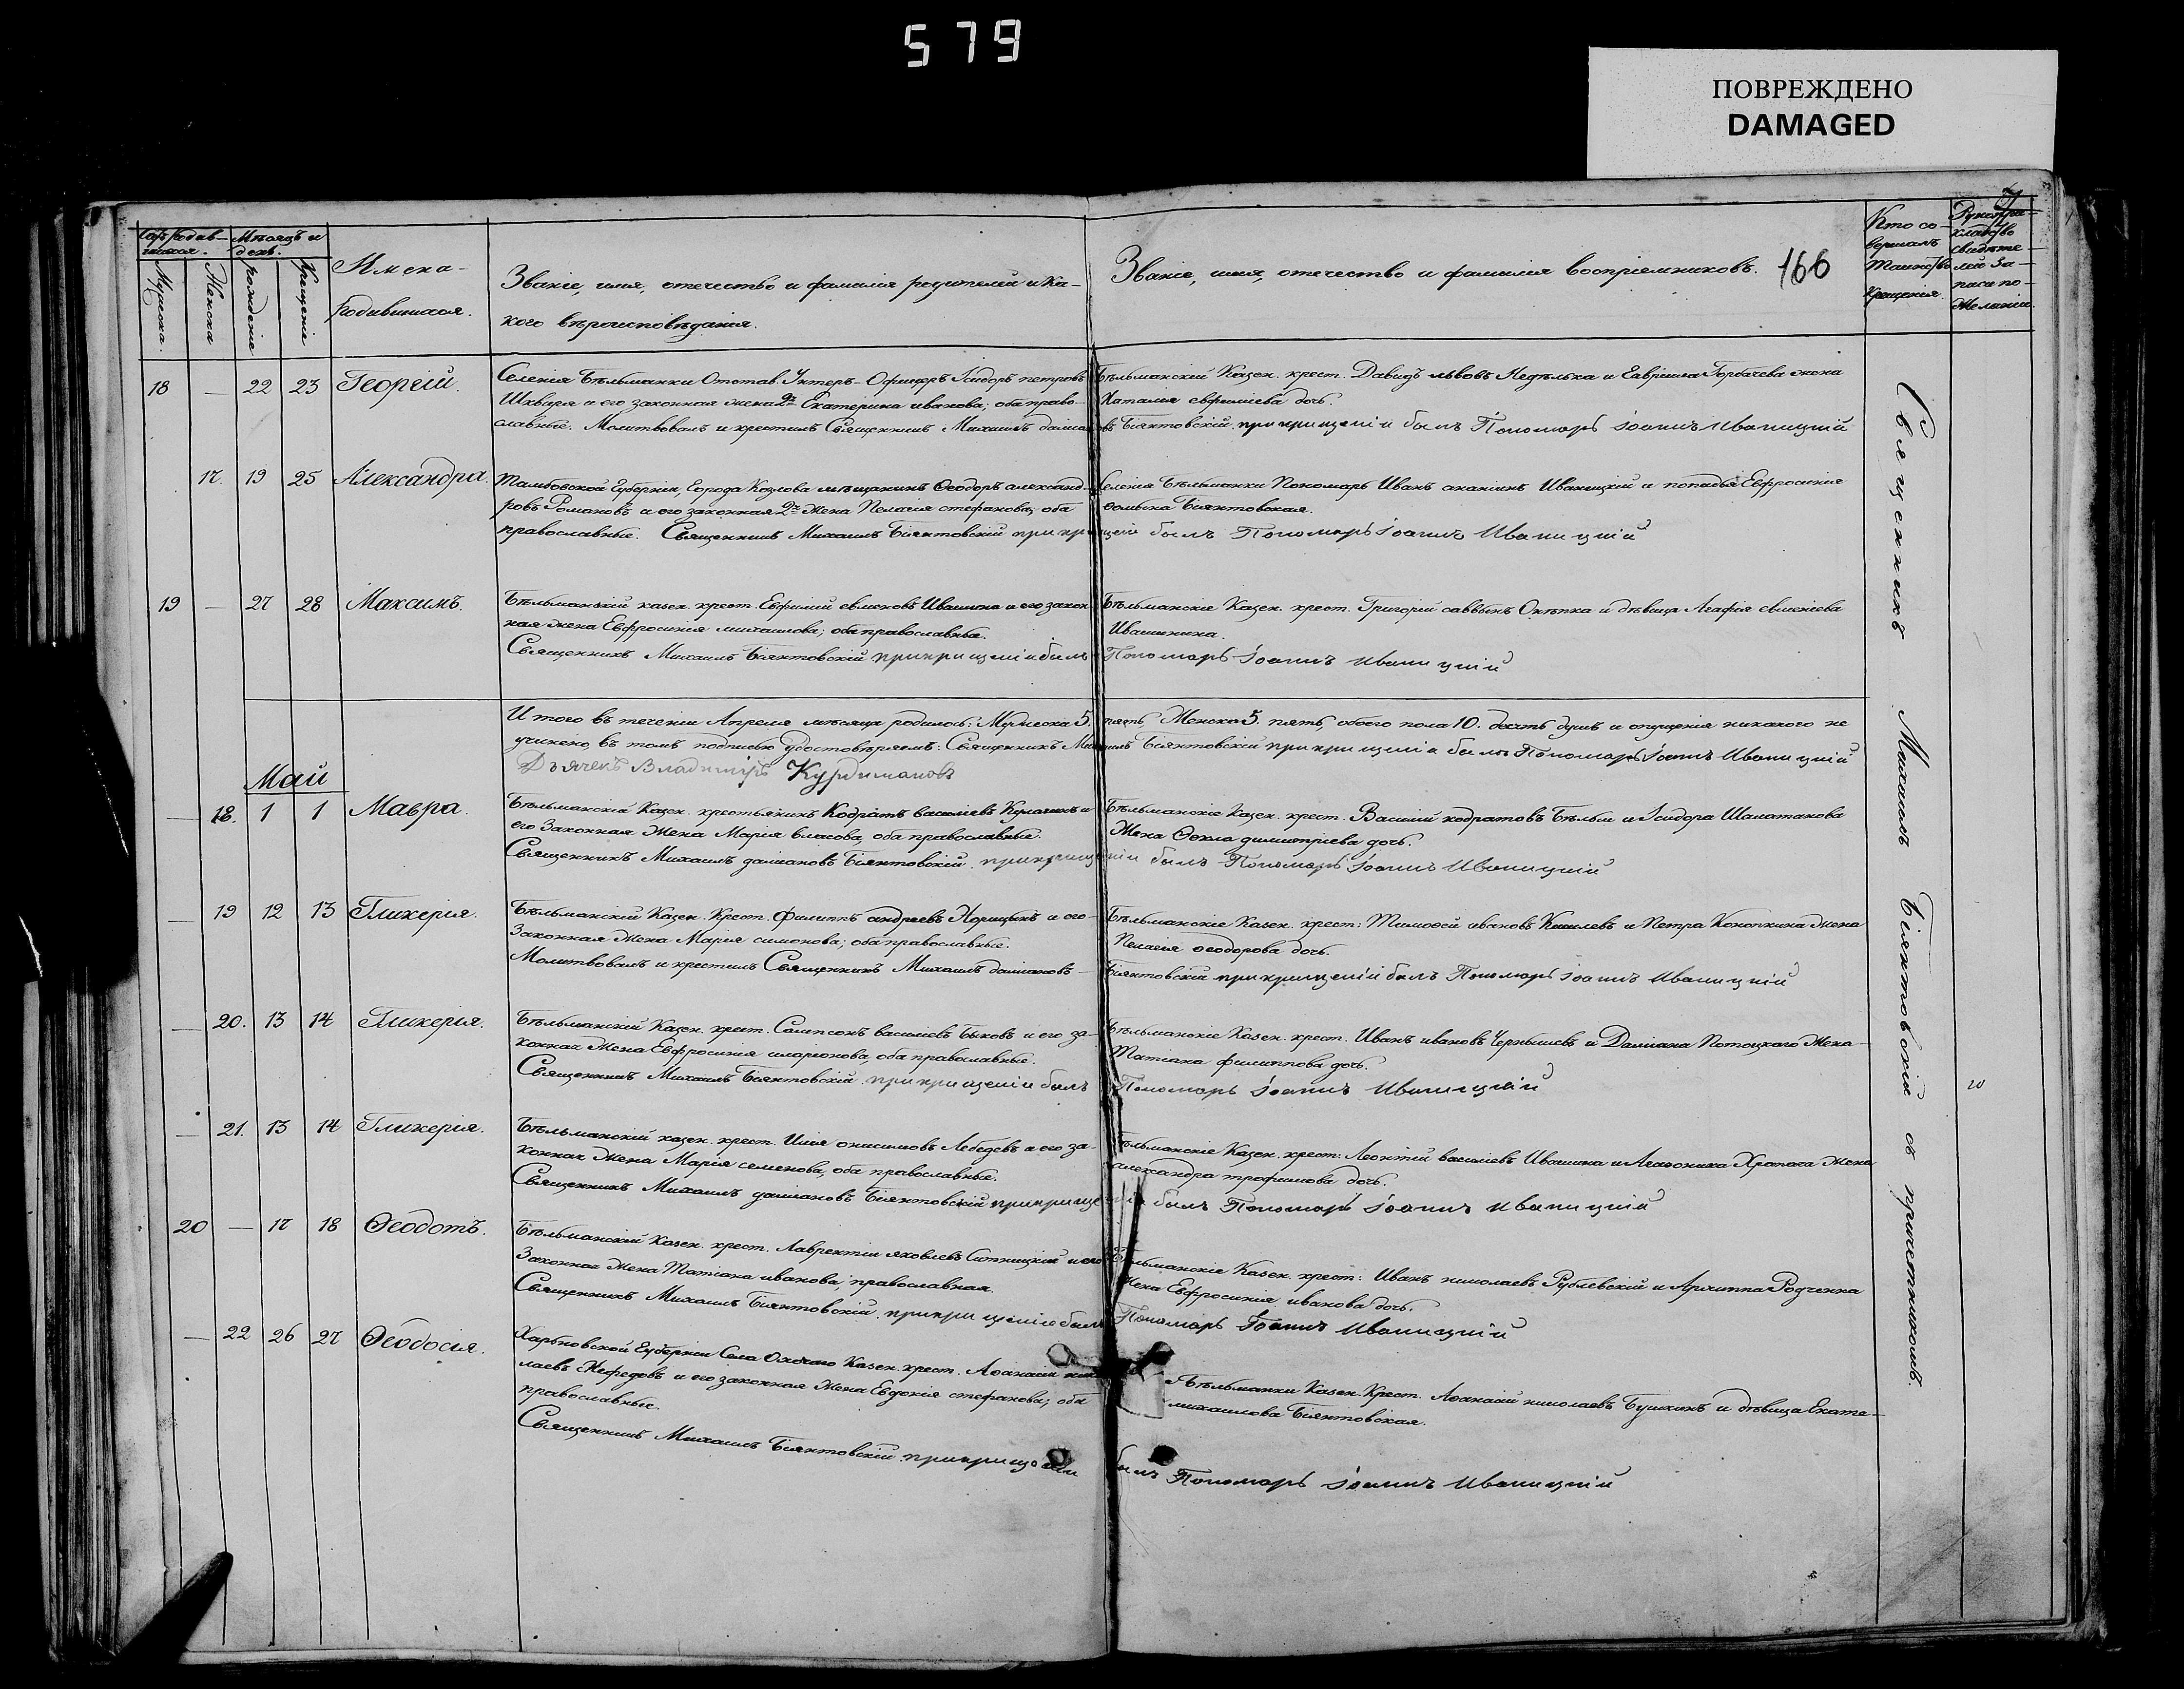 579
ПОВРЕЖДЕНО
DAMAGED
Мѣсяцъ и
день.
Мужеска.
Женска
рожденіе
Крещеніе
Имена
Родившихся.
Званіе, имя, отечество и фамилія родителей и ка-
кого вѣроисповѣданія.
Званіе, имя, отечество и фамилія воспріемниковъ. 166
Кто со-
вершалъ
Таинство
Крещенія.
Рукопри-
кладство
свидѣте-
лей за-
писи по
Желанію.
18 — 22 23 Георгій.
Селенія Бѣльманки Отстав. Унтеръ-Офицеръ Исидоръ петровъ
и его законная жена Екатерина иванова; оба право-
славные. Молитвовалъ и крестилъ Священникъ Михаилъ
Бѣльманскій Казен. крест. Давидъ львовъ Недѣлька и Гавріила Горбачева жена
Наталія евфиміева дочь.
Біянтовскій при крищеніи былъ Пономарь Іоаннъ Иваницкій
17. 19 25 Александра.
Тамбовской Губерніи, Города Козлова мѣщанинъ Ѳеодоръ александ-
ровъ Романовъ и его законная жена Пелагія стефанова; оба
православные. Священникъ Михаилъ Біянтовскій при кри
Селенія Бѣльманки Пономарь Иванъ Иваницкій и попадья Евфросинія
Біянтовская.
щеніи былъ Пономарь Іоаннъ Иваницкій
19 — 27 28 Максимъ.
Бѣльманскій казен. крест. Евфимій Ивашина и его закон
ная жена Евфросинія михаилова; оба православные.
Священникъ Михаилъ Біянтовскій при крищеніи былъ
Бѣльманскіе Казен. крест. Григорій саввинъ и дѣвица Агафія
Ивашинина.
Пономарь Іоаннъ Иваницкій
Итого въ теченіи Апреля мѣсяца родилось: Мужеска 5. пять Женска 5. пять, обоего пола 10. десять душъ и опущенія никакого не
учинено, въ томъ подписью удостовѣряемъ: Священникъ Михаилъ Біянтовскій при крищеніи былъ Пономарь Іоаннъ Иваницкій
Дьячекъ Владиміръ Курдимановъ
Май
— 18. 1 1 Мавра.
Бѣльманскій Казен. крестьянинъ Кодратъ василіевъ и
его Законная Жена Марія власова, оба православные.
Священникъ Михаилъ даміановъ Біянтовскій при крищ
Бѣльманскіе Казен. крест. Василій кодратовъ и Исидора Шаматанова
Жена Ѳекла димитріева дочь.
еніи былъ Пономарь Іоаннъ Иваницкій
— 19 12 13 Гликерія.
Бѣльманскій Казен. Крест. Филиппъ андреевъ и его
Законная Жена Марія симонова; оба православные.
Молитвовалъ и крестилъ Священникъ Михаилъ даміановъ
Бѣльманскіе Казен. крест: Тимоѳей ивановъ и Петра Конопкина Жена
Пелагія ѳеодорова дочь.
Біянтовскій при крищеніи былъ Пономарь Іоаннъ Иваницкій
— 20. 13 14 Гликерія.
Бѣльманскій Казен. крест. Сампсонъ василіевъ Быковъ и его за-
конная Жена Евфросинія иларіонова оба православные.
Священникъ Михаилъ Біянтовскій при крищеніи былъ
Бѣльманскіе Казен. крест. Иванъ ивановъ Чернышевъ и Даміана Потоцкаго Жена
Татіана филиппова дочь.
Пономарь Іоаннъ Иваницкій
20
— 21. 13 14 Гликерія.
Бѣльманскій казен. крест. Илія онисимовъ Лебедевъ и его за-
конная Жена Марія семенова, оба православные.
Священникъ Михаилъ даміановъ Біянтовскій при крище
Бѣльманскіе Казен. крест: Леонтій василіевъ Ивашина и Агаѳоника Храпача Жена
александра трофимова дочь.
ніи былъ Пономарь Іоаннъ Иваницкій
20 — 17 18 Ѳеодотъ.
Бѣльманскій Казен. крест. Лаврентій яковлевъ Ситницкій и его
Законная Жена Татіана иванова, православная.
Священникъ Михаилъ Біянтовскій при крищеніи былъ
Бѣльманскіе Казен. крест: Иванъ николаевъ Рублевскій и Архиппа Родченка
Жена Евфросинія иванова дочь.
Пономарь Іоаннъ Иваницкій
— 22 26 27 Ѳеодосія.
Харьковской Губерніи Села Охочаго Казен. крест. Аѳанасій нико
лаевъ Нефедовъ и его законная Жена Евдокія стефанова; оба
православные.
Священникъ Михаилъ Біянтовскій при крищеніи
Бѣльманки Казен. Крест. Аѳанасій николаевъ и дѣвица Екате-
михаилова Біянтовская.
былъ Пономарь Іоаннъ Иваницкій
Священникъ Михаилъ Біянтовскій съ причетникомъ.